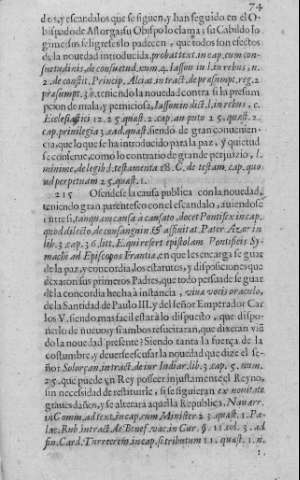 74
dos, y escandalos que se siguen, y han seguido en el O-
bispado de Astorga, su Obispo lo clama; su Cabildo lo
gime; sus feligreses lo padecen, que todos son efectos
de la nouedad introducida, probat text. in cap. cum con-
suetudinis, de consuetud. num. 4. Iasson in l. in rebus, n.
2. de constit. Princip. Alcias in tract. de præsumpt. reg. 2
præsumpt. 30. teniendo la nouedad contra si la presum
pcion de mala, y perniciosa, Iasson in dict. l. in rebus, c.
Ecclesiastici 12. 25. quæst. 2. cap. an puto 25. quæst. 2.
cap. privilegia 3. ead. quæst. siendo de gran convenien-
cia, que lo que se ha introducido para la paz, y quietud
se conserue, como lo contrario de grande perjuizio, l.
minime, de legib. l. testamenta 18. C. de testam. cap. quo
ad perpetuam 25. quæst. 1.
215 Ofendese la causa publica con la nouedad,
teniendo gran parentesco con el escandalo, auiendose
entre si, tanquam causa à causato, docet Pontifex in cap.
quod dilecto, de consanguin. & affinitat. Pater Azor in
lib. 3. cap. 36. litt. E. qui refert epistolam Pontificis Sy-
machi ad Episcopos Frantia, en que les encarga se guar
de la paz, y concordia, los estatutos, y disposiciones que
dexaron sus primeros Padres, que todo persuade se guar
de la concordia hecha à instancia, viuæ vocis oraculo,
de la Santidad de Paulo III. y del señor Emperador Car
los V. siendo mas facil estar à lo dispuesto, que dispo-
nerlo de nueuo; y si ambos resucitaran, que dixeran viẽ
do la nouedad presente? Siendo tanta la fuerça de la
costumbre, y deuerse escusar la nouedad que dize el se-
ñor Solorçan, in tract. de iur. Indiar. lib. 3. cap. 5. num.
25. que puede vn Rey posseer injustamente el Reyno,
sin necessidad de restituirle, si se siguieran ex nouitate
graues daños, y se alterarà aquella Republica, Nauarr.
in Comm. ad text. in cap. cum Minister 23. quæst. 1. Pa-
lac. Rub. in tract. de Benef. vac. in Cur. § 11. col. 3. ad
fin. Card. Turrecrem. in cap. si tributum 11. quæst. 1. n.